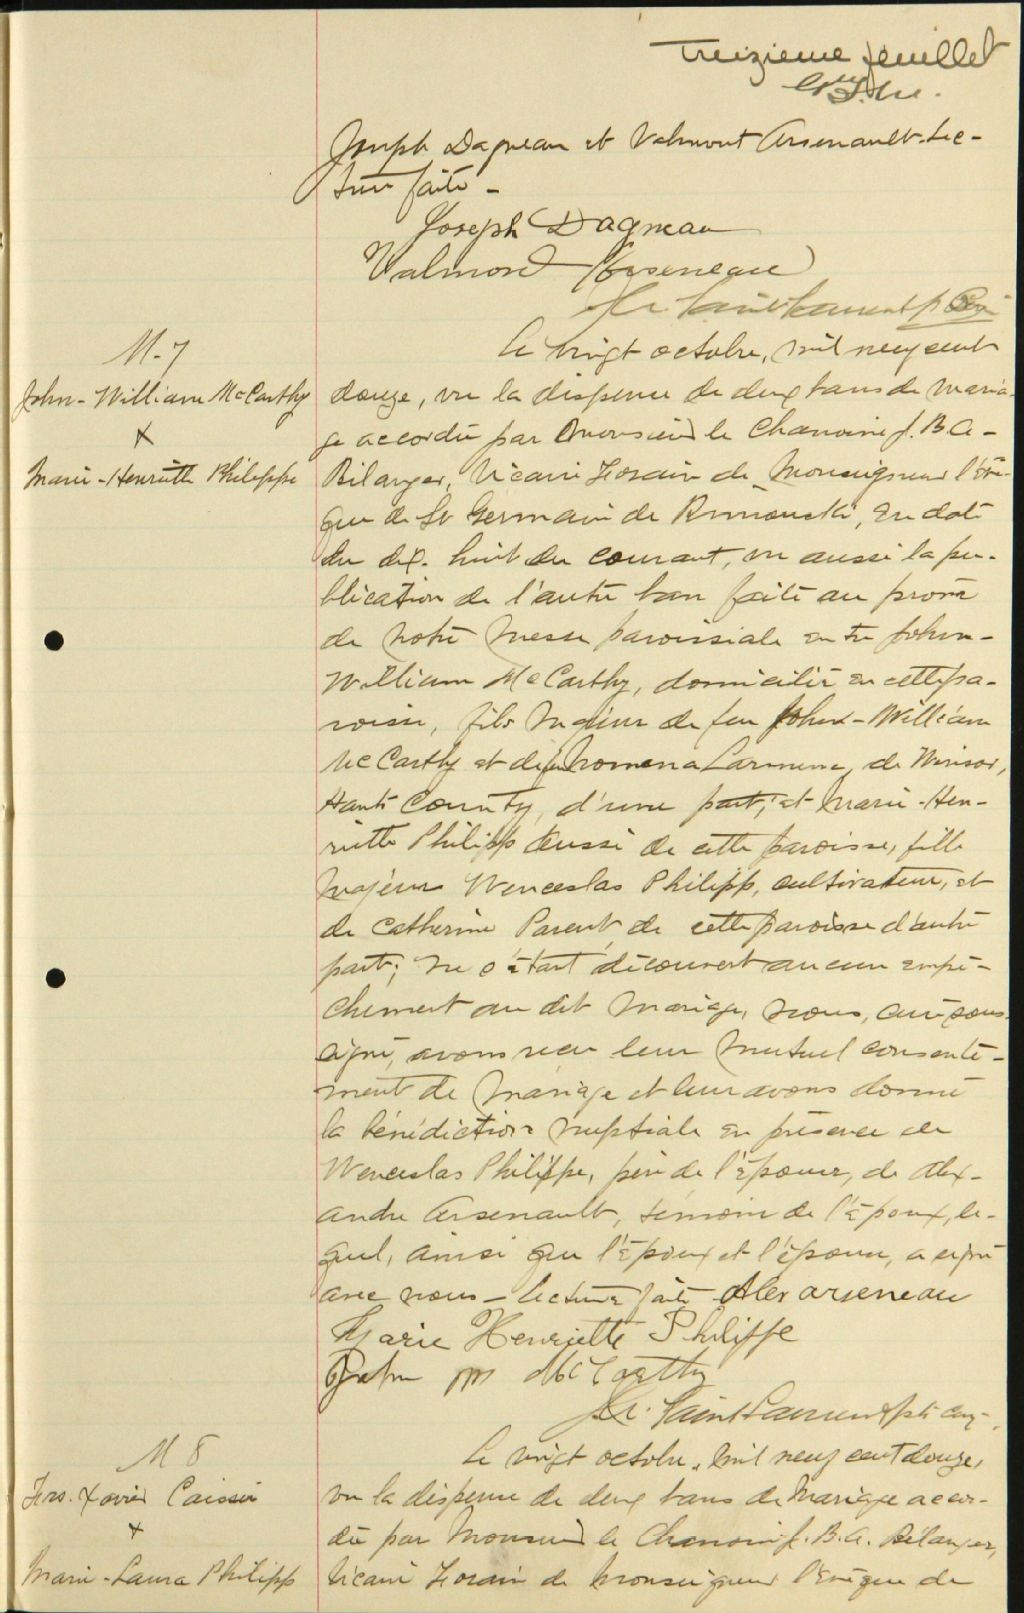 Treizieme feuillet
Joseph Dagneau et Valmont Arsenault. Lec-
ture faite -
Joseph Dagneau
Valmond Arseneau
Saint Laurent p
M. 7
John-William McCarthy
x
Marie-Henriette Philippe
Le vingt octobre, mil neuf cent
douze, vu la dispense de deux bans de maria-
ge accordée par Monsieur le Chanoine J. B. A-
Bélanger, Vicaire Forain de Monseigneur l'Évê-
que de St Germain de Rimouski, en date
du dix-huit du courant, vu aussi la pu-
blication de l'autre ban faite au prône
de notre Messe paroissiale entre John-
William McCarthy, domicilié en cette pa-
roisse, fils majeur de feu John-William
McCarthy et de Philomena, de Winsor,
Hants County, d'une part; et Marie-Hen-
riette Philipp aussi de cette paroisse, fille
majeure Wenceslas Philipp, cultivateur, et
de Catherine Parent, de cette paroisse d'autre
part; ne s'étant découvert aucun empê-
chement au dit mariage, nous, curé sous-
signé, avons reçu leur mutuel consente-
ment de mariage et leur avons donné
la bénédiction nuptiale en présence de
Wenceslas Philippe, père de l'épouse, de Alex-
andre Arsenault, témoin de l'époux, le-
quel, ainsi que l'époux et l'épouse, a signé
avec nous - lecture faite - Alex arseneau
Marie Henriette Philippe
John Wm McCarthy
Saint Laurent ptre curé
M 8
Frs. Xavier Caissie
x
Marie-Laura Philipp
Le vingt octobre, mil neuf cent douze,
vu la dispense de deux bans de mariage accor-
dée par Monsieur le Chanoine J. B. A. Bélanger,
Vicaire Forain de Monseigneur l'Évêque de